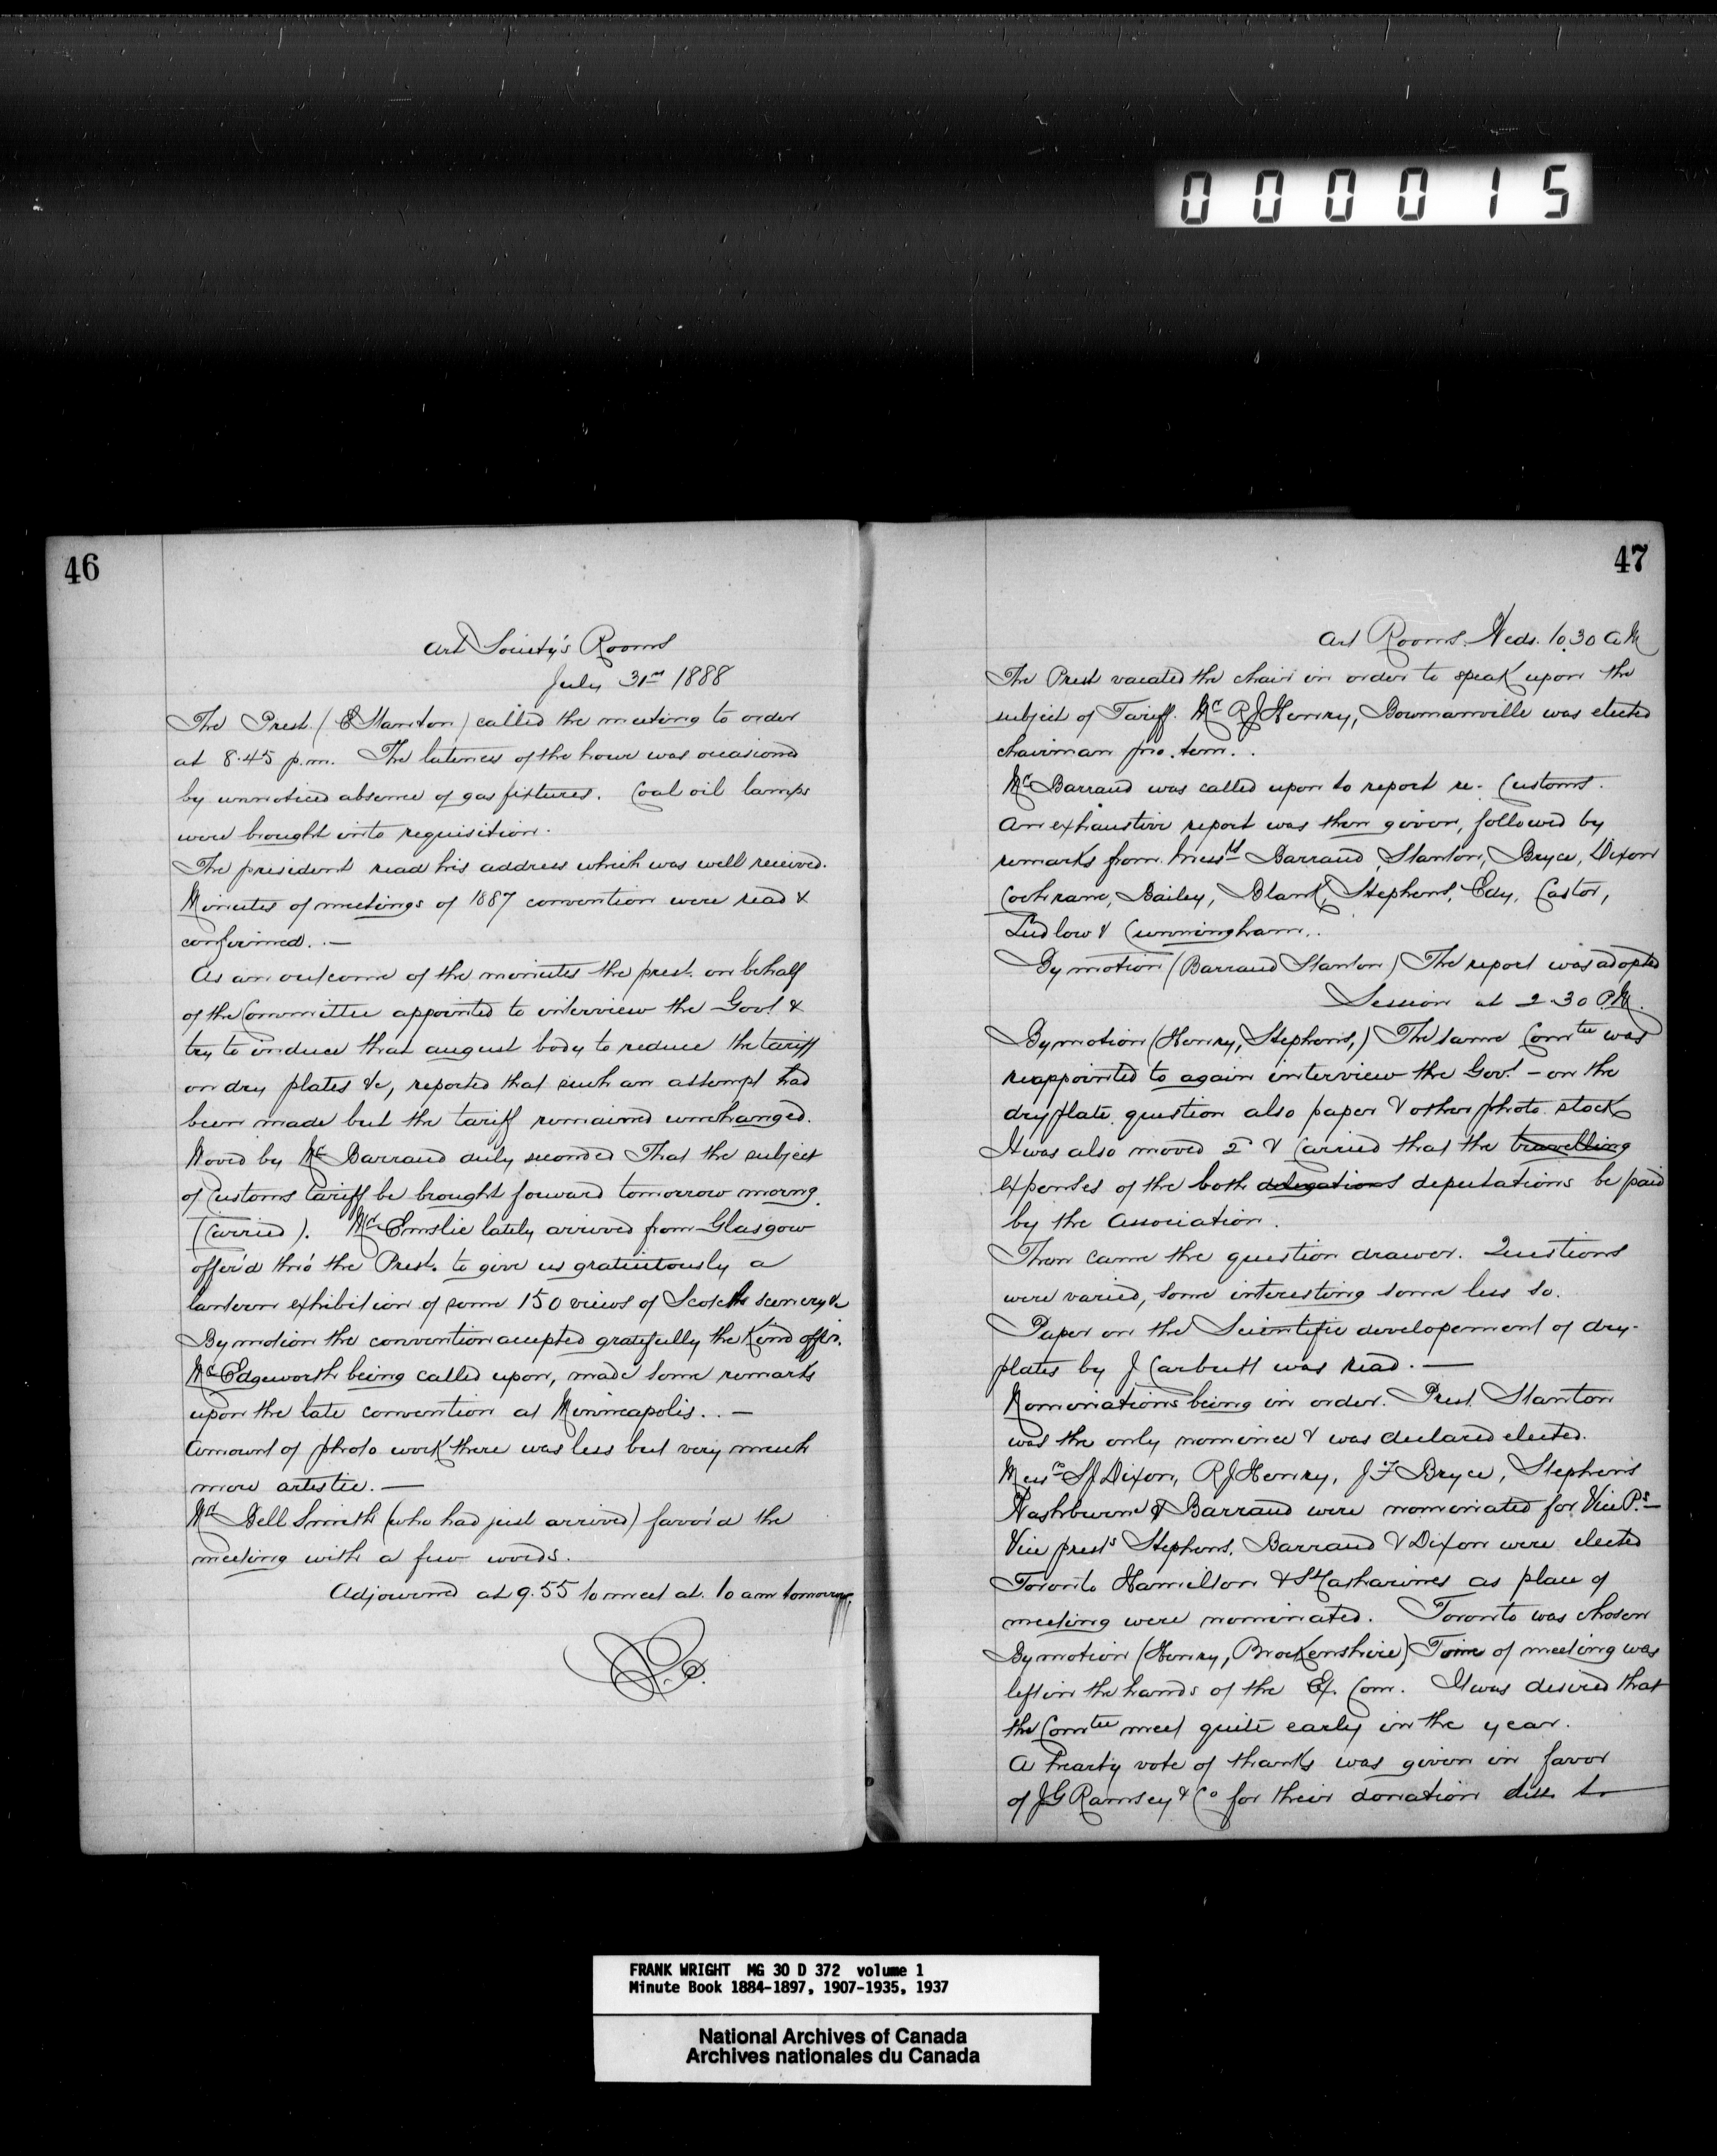 000015
46
Art Society's Rooms
July 31st 1888
The Prest. (E Stanton) called the meeting to order
at 8.45 p.m. The lateness of the hour was occasioned
by unnoticed absence of gas fixtures. Coal oil lamps
were brought into requisition.
The president read his address which was well received.
Minutes of meetings of 1887 convention were read &
confirmed. —
As an outcome of the minutes the prest. on behalf
of the Committee appointed to interview the Govt &
try to induce that august body to reduce the tariff
on dry plates &c, reported that such an attempt had
been made but the tariff remained unchanged.
Moved by Mr Barraud duly seconded That the subject
of Customs tariff be brought forward tomorrow morng.
(Carried). Mr Emslie lately arrived from Glasgow
offer'd thro' the Prest. to give us gratuitously a
lantern exhibition of some 150 views of Scotch scenery &c
By motion the convention accepted gratefully the kind offer.
Mr Edgeworth being called upon, made some remarks
upon the late convention at Minneapolis. . —
Amount of photo work there was less but very much
more artistic. —
Mr Dell Smith (who had just arrived) favo'd the
meeting with a few words.
Adjourned at 9.55 to meet at 10 am tomorrow.
47
Art Rooms. Weds. 10.30 A.M
The Prest vacated the chair in order to speak upon the
subject of Tariff. Mr R J Henry, Bowmanville was elected
chairman pro. tem. .
Mr Barraud was called upon to report re- Customs.
An exhaustive report was then given, followed by
remarks from Messrs Barraud, Stanton, Bryce, Dixon
Cochrane, Bailey, Blank, Stephens, Edy, Castor,
Ludlow & Cunningham. .
By motion (Barraud Stanton) The report was adopted
Session at 2.30 P.M.
By motion (Henry, Stephens,) The same Comtee was
reappointed to again interview the Govt - on the
dryplate question also paper & other photo stock
It was also moved 2d & Carried that the travelling
expenses of the both delegations deputations be paid
by the Association.
Then came the question drawer. Questions
were varied, some interesting some less so.
Paper on the Scientific developement of dry-
plates by J Carbutt was read. —
Nominations being in order. Prest. Stanton
was the only nominee & was declared elected.
Messrs S J Dixon, R J Henry, J F Bryce, Stephens
Washburne & Barraud were nominated for Vice P.s —
Vice prests Stephens, Barraud & Dixon were elected
Toronto Hamilton & St Catharines as place of
meeting were nominated. Toronto was chosen
By motion (Henry, Brockenshire) Time of meeting was
left in the hands of the Ex. Com. It was desired that
the Comtee meet quite early in the year.
A hearty vote of thanks was given in favor
of J G Ramsey & Co for their donation
FRANK WRIGHT MG 30 D 372 volume 1
Minute Book 1884-1897, 1907-1935, 1937
National Archives of Canada
Archives nationales du Canada